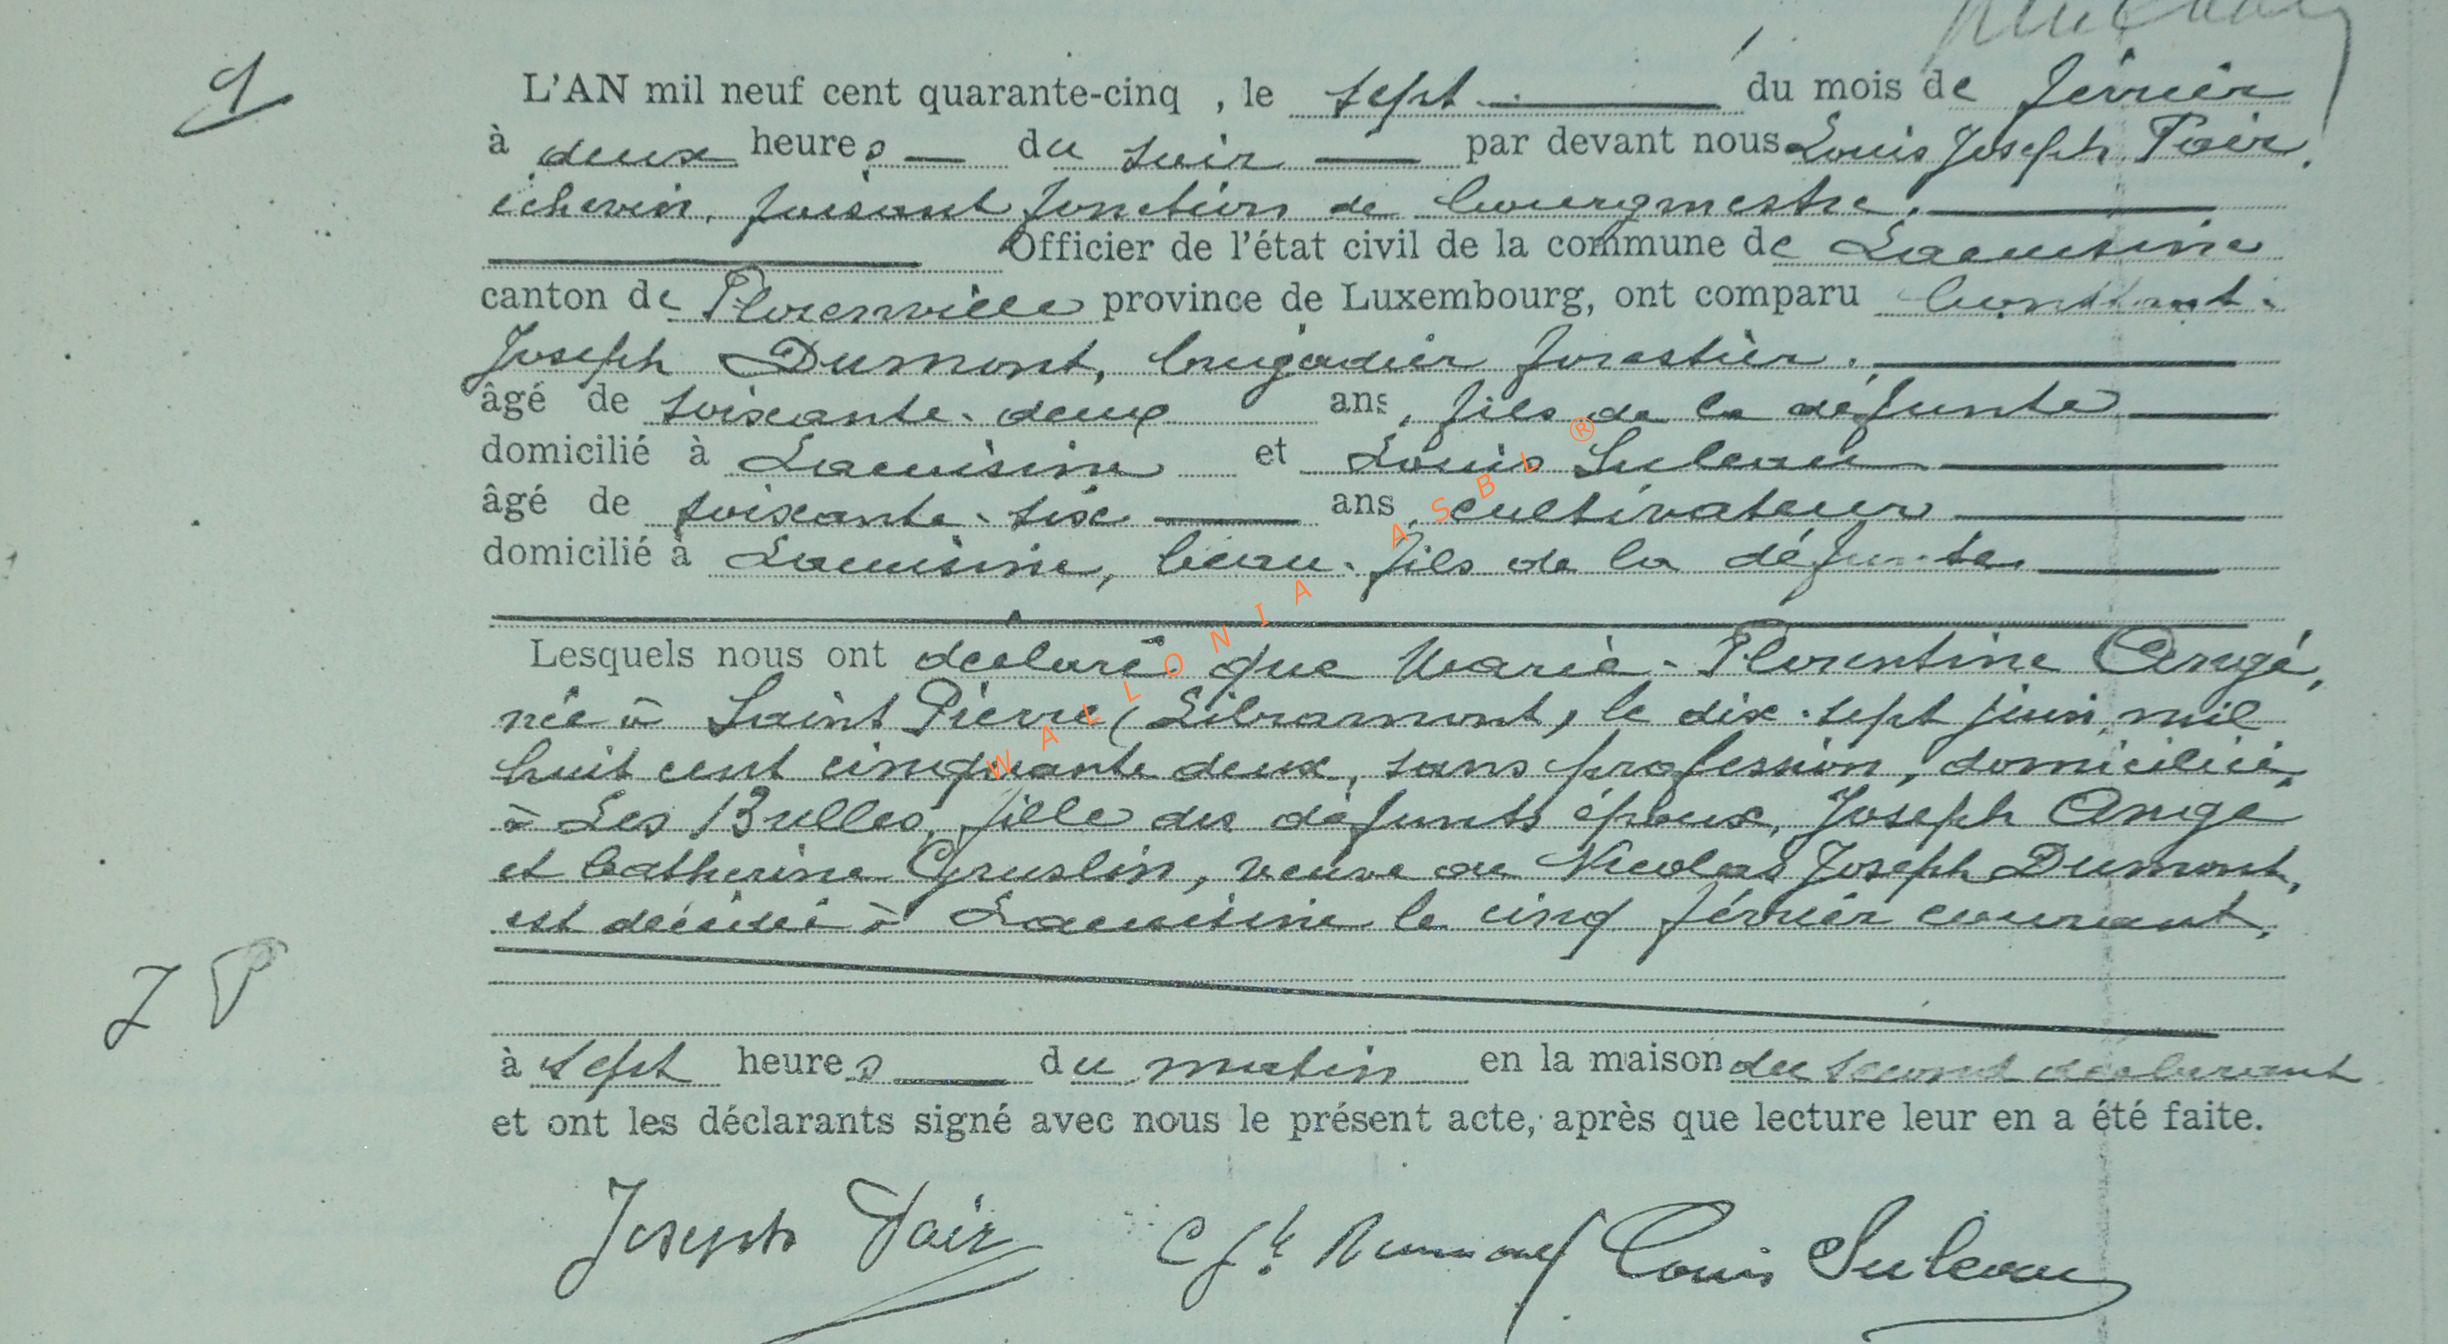 9
L'AN mil neuf cent quarante-cinq , le sept du mois de février
à deux heures du soir par devant nous Louis Joseph Poir,
échevin, faisant fonction de bourgmestre.
Officier de l'état civil de la commune de Lacuisine
canton de Florenville province de Luxembourg, ont comparu Constant
Joseph Dumont, brigadier forestier.
âgé de soixante-deux ans, fils de la défunte
domicilié à Lacuisine et Louis Suleau
âgé de soixante-six ans, cultivateur
domicilié à Lacuisine, beau-fils de la défunte
Lesquels nous ont déclaré que Marie-Florentine Augé,
née à Saint Pierre (Libramont, le dix-sept juin mil
huit cent cinquante deux, sans profession, domiciliée
à Les Bulles, fille des défunts époux, Joseph Augé
et Catherine Gruslin, veuve de Nicolas Joseph Dumont,
est décédée à Lacuisine le cinq février courant,
J P
à sept heures du matin en la maison du second déclarant
et ont les déclarants signé avec nous le présent acte, après que lecture leur en a été faite.
Joseph Poir C Jh Dumont Louis Suleau
WALLONIA ASBL ®